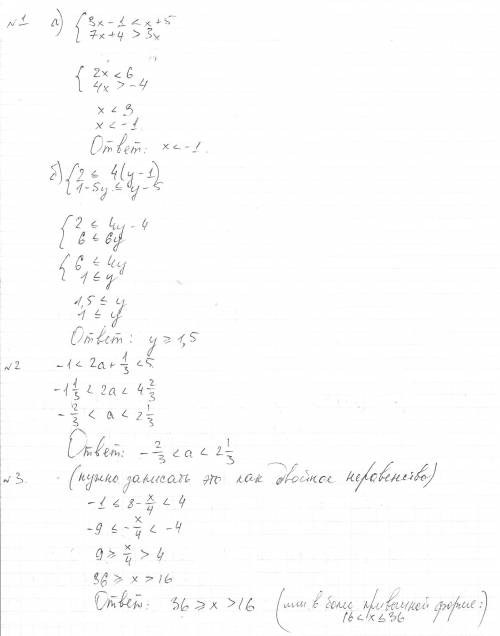 №1 а) { 3x - 1 < x + 5
7x + 4 > 3x
{ 2x < 6
4x > -4
x < 3
x < -1
Ответ: x < -1.
б) { 2 ≤ 4(y-1)
1-5y ≤ y-5
{ 2 ≤ 4y - 4
6 ≤ 6y
{ 6 ≤ 4y
1 ≤ y
1,5 ≤ y
1 ≤ y
Ответ: y ≥ 1,5
№2 -1 < 2a + 1/3 < 5
-1 1/3 < 2a < 4 2/3
-2/3 < a < 2 1/3
Ответ: -2/3 < a < 2 1/3
№3. (нужно записать это как двойное неравенство)
-1 ≤ 8 - x/4 < 4
-9 ≤ -x/4 < -4
9 ≥ x/4 > 4
36 ≥ x > 16
Ответ: 36 ≥ x > 16 (или в более привычной форме:
16 < x ≤ 36